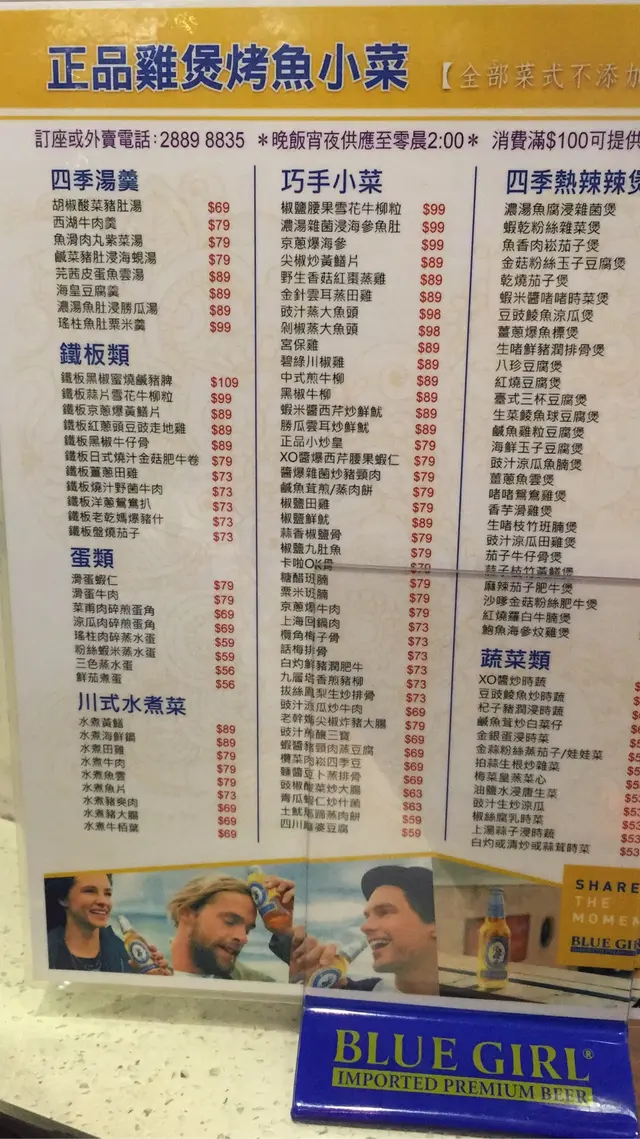 正品雞煲烤魚小菜
【全部菜式不添加
訂座或外賣電話:2889 8835 *晚飯宵夜供應至零晨2:00* 消費滿$100可提供
四季湯羹
胡椒酸菜豬肚湯 $69
西湖牛肉羹 $79
魚滑肉丸紫菜湯 $79
鹹菜豬肚浸海蜆湯 $79
芫茜皮蛋魚雲湯 $89
海皇豆腐羹 $89
濃湯魚肚浸勝瓜湯 $89
瑤柱魚肚粟米羹 $99
鐵板類
鐵板黑椒蜜燒鹹豬脾 $109
鐵板蒜片雪花牛柳粒 $99
鐵板京蔥爆黃鱔片 $89
鐵板紅蔥頭豆豉走地雞 $89
鐵板黑椒牛仔骨 $89
鐵板日式燒汁金菇肥牛卷 $79
鐵板薑蔥田雞 $73
鐵板燒汁野菌牛肉 $73
鐵板洋蔥鴛鴦扒 $73
鐵板老乾媽爆豬什 $73
鐵板盤燒茄子 $73
蛋類
滑蛋蝦仁 $79
滑蛋牛肉 $79
菜甫肉碎煎蛋角 $69
涼瓜肉碎煎蛋角 $69
瑤柱肉碎蒸水蛋 $59
粉絲蝦米蒸水蛋 $59
三色蒸水蛋 $56
鮮茄煮蛋 $56
川式水煮菜
水煮黃鱔 $89
水煮海鮮鍋 $89
水煮田雞 $79
水煮牛肉 $79
水煮魚雲 $79
水煮魚片 $73
水煮豬爽肉 $69
水煮豬大腸 $69
水煮牛栢葉 $69
巧手小菜
椒鹽腰果雪花牛柳粒 $99
濃湯雜菌浸海參魚肚 $99
京蔥爆海參 $99
尖椒炒黃鱔片 $89
野生香菇紅棗蒸雞 $89
金針雲耳蒸田雞 $89
豉汁蒸大魚頭 $98
剁椒蒸大魚頭 $98
宮保雞 $89
碧綠川椒雞 $89
中式煎牛柳 $89
黑椒牛柳 $89
蝦米醬西芹炒鮮魷 $89
勝瓜雲耳炒鮮魷 $89
正品小炒皇 $79
XO醬爆西芹腰果蝦仁 $79
醬爆雜菌炒豬頸肉 $79
鹹魚茸煎/蒸肉餅 $79
椒鹽田雞 $79
椒鹽鮮魷 $89
蒜香椒鹽骨 $79
椒鹽九肚魚 $79
卡啦OK骨 $79
糖醋斑腩 $79
粟米斑腩 $79
京蔥爆牛肉 $79
上海回鍋肉 $73
欖角梅子骨 $73
話梅排骨 $73
白灼鮮豬潤肥牛 $73
九層塔香煎豬柳 $73
拔絲鳳梨生炒排骨 $73
豉汁涼瓜炒牛肉 $69
老幹媽尖椒炸豬大腸 $79
豉汁煎釀三寶 $69
蝦醬豬頸肉蒸豆腐 $69
欖菜肉崧四季豆 $69
蒸排骨 $69
豉椒酸菜炒大腸 $63
青瓜蝦仁炒什菌 $63
土魷馬蹄蒸肉餅 $59
四川麻婆豆腐 $59
四季熱辣辣煲
濃湯魚腐浸雜菌煲
蝦乾粉絲雜菜煲
魚香肉崧茄子煲
金菇粉絲玉子豆腐煲
乾燒茄子煲
蝦米醬啫啫時菜煲
豆豉鯪魚涼瓜煲
薑蔥爆魚標煲
生啫鮮豬潤排骨煲
八珍豆腐煲
紅燒豆腐煲
臺式三杯豆腐煲
生菜鯪魚球豆腐煲
鹹魚雞粒豆腐煲
海鮮玉子豆腐煲
豉汁涼瓜魚腩煲
薑蔥魚雲煲
啫啫鴛鴦雞煲
香芋滑雞煲
生啫枝竹斑腩煲
豉汁涼瓜田雞煲
茄子牛仔骨煲
蒜子枝竹黃鱔煲
麻辣茄子肥牛煲
沙嗲金菇粉絲肥牛煲
紅燒蘿白牛腩煲
鮑魚海參炆雞煲
蔬菜類
XO醬炒時蔬
豆豉鯪魚炒時蔬
杞子豬潤浸時蔬
鹹魚茸炒白菜仔
金銀蛋浸時菜
金蒜粉絲蒸茄子/娃娃菜
拍蒜生根炒雜菜
梅菜皇蒸菜心
油鹽水浸唐生菜
豉汁生炒涼瓜
椒絲腐乳時菜
上湯蒜子浸時蔬
白灼或清炒或蒜茸時菜 $53
SHARE
THE
MOMEN
BLUE GIR
BLUE GIRL®
IMPORTED PREMIUM BEER